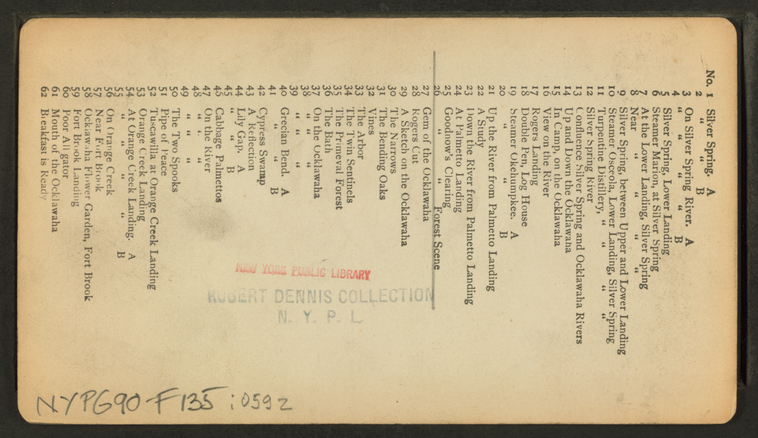 No. 1 Silver Spring. A
2 " " B
3 On Silver Spring River. A
4 " " " " B
5 Silver Spring, Lower Landing
6 Steamer Marion, at Silver Spring
7 At the Lower Landing, Silver Spring
8 Near " " " "
9 Silver Spring, between Upper and Lower Landing
10 Steamer Osceola, Lower Landing, Silver Spring
11 Turpentine Distillery, " " "
12 Silver Spring River
13 Confluence Silver Spring and Ocklawaha Rivers
14 Up and Down the Ocklawaha
15 In Camp, on the Ocklawaha
16 View on the River
17 Rogers Landing
18 Double Pen, Log House
19 Steamer Okehumpkee. A
20 " " B
21 Up the River from Palmetto Landing
22 A Study
23 Down the River from Palmetto Landing
24 At Palmetto Landing
25 Goodnow's Clearing
26 " " Forest Scene
27 Gem of the Ocklawaha
28 Rogers Cut
29 A Sketch on the Ocklawaha
30 The Narrows
31 The Bending Oaks
32 Vines
33 The Arbor
34 The Twin Sentinels
35 The Primeval Forest
36 The Bath
37 On the Ocklawaha
38 " " "
39 " " "
40 Grecian Bend. A
41 " " B
42 Cypress Swamp
43 A Reflection
44 Lily Gap. A
45 " " B
46 Cabbage Palmettos
47 On the River
48 " " "
49 " " "
50 The Two Spooks
51 Pipe of Peace
52 Tuscawilla at Orange Creek Landing
53 Orange Creek Landing
54 At Orange Creek Landing. A
55 " " " " B
56 On Orange Creek
57 Near Fort Brook
58 Ocklawaha Flower Garden, Fort Brook
59 Fort Brook Landing
60 Poor Alligator
61 Mouth of the Ocklawaha
62 Breakfast is Ready
NEW YORK PUBLIC LIBRARY
ROBERT DENNIS COLLECTION
N. Y. P. L.
NYPG90-F135 :0592